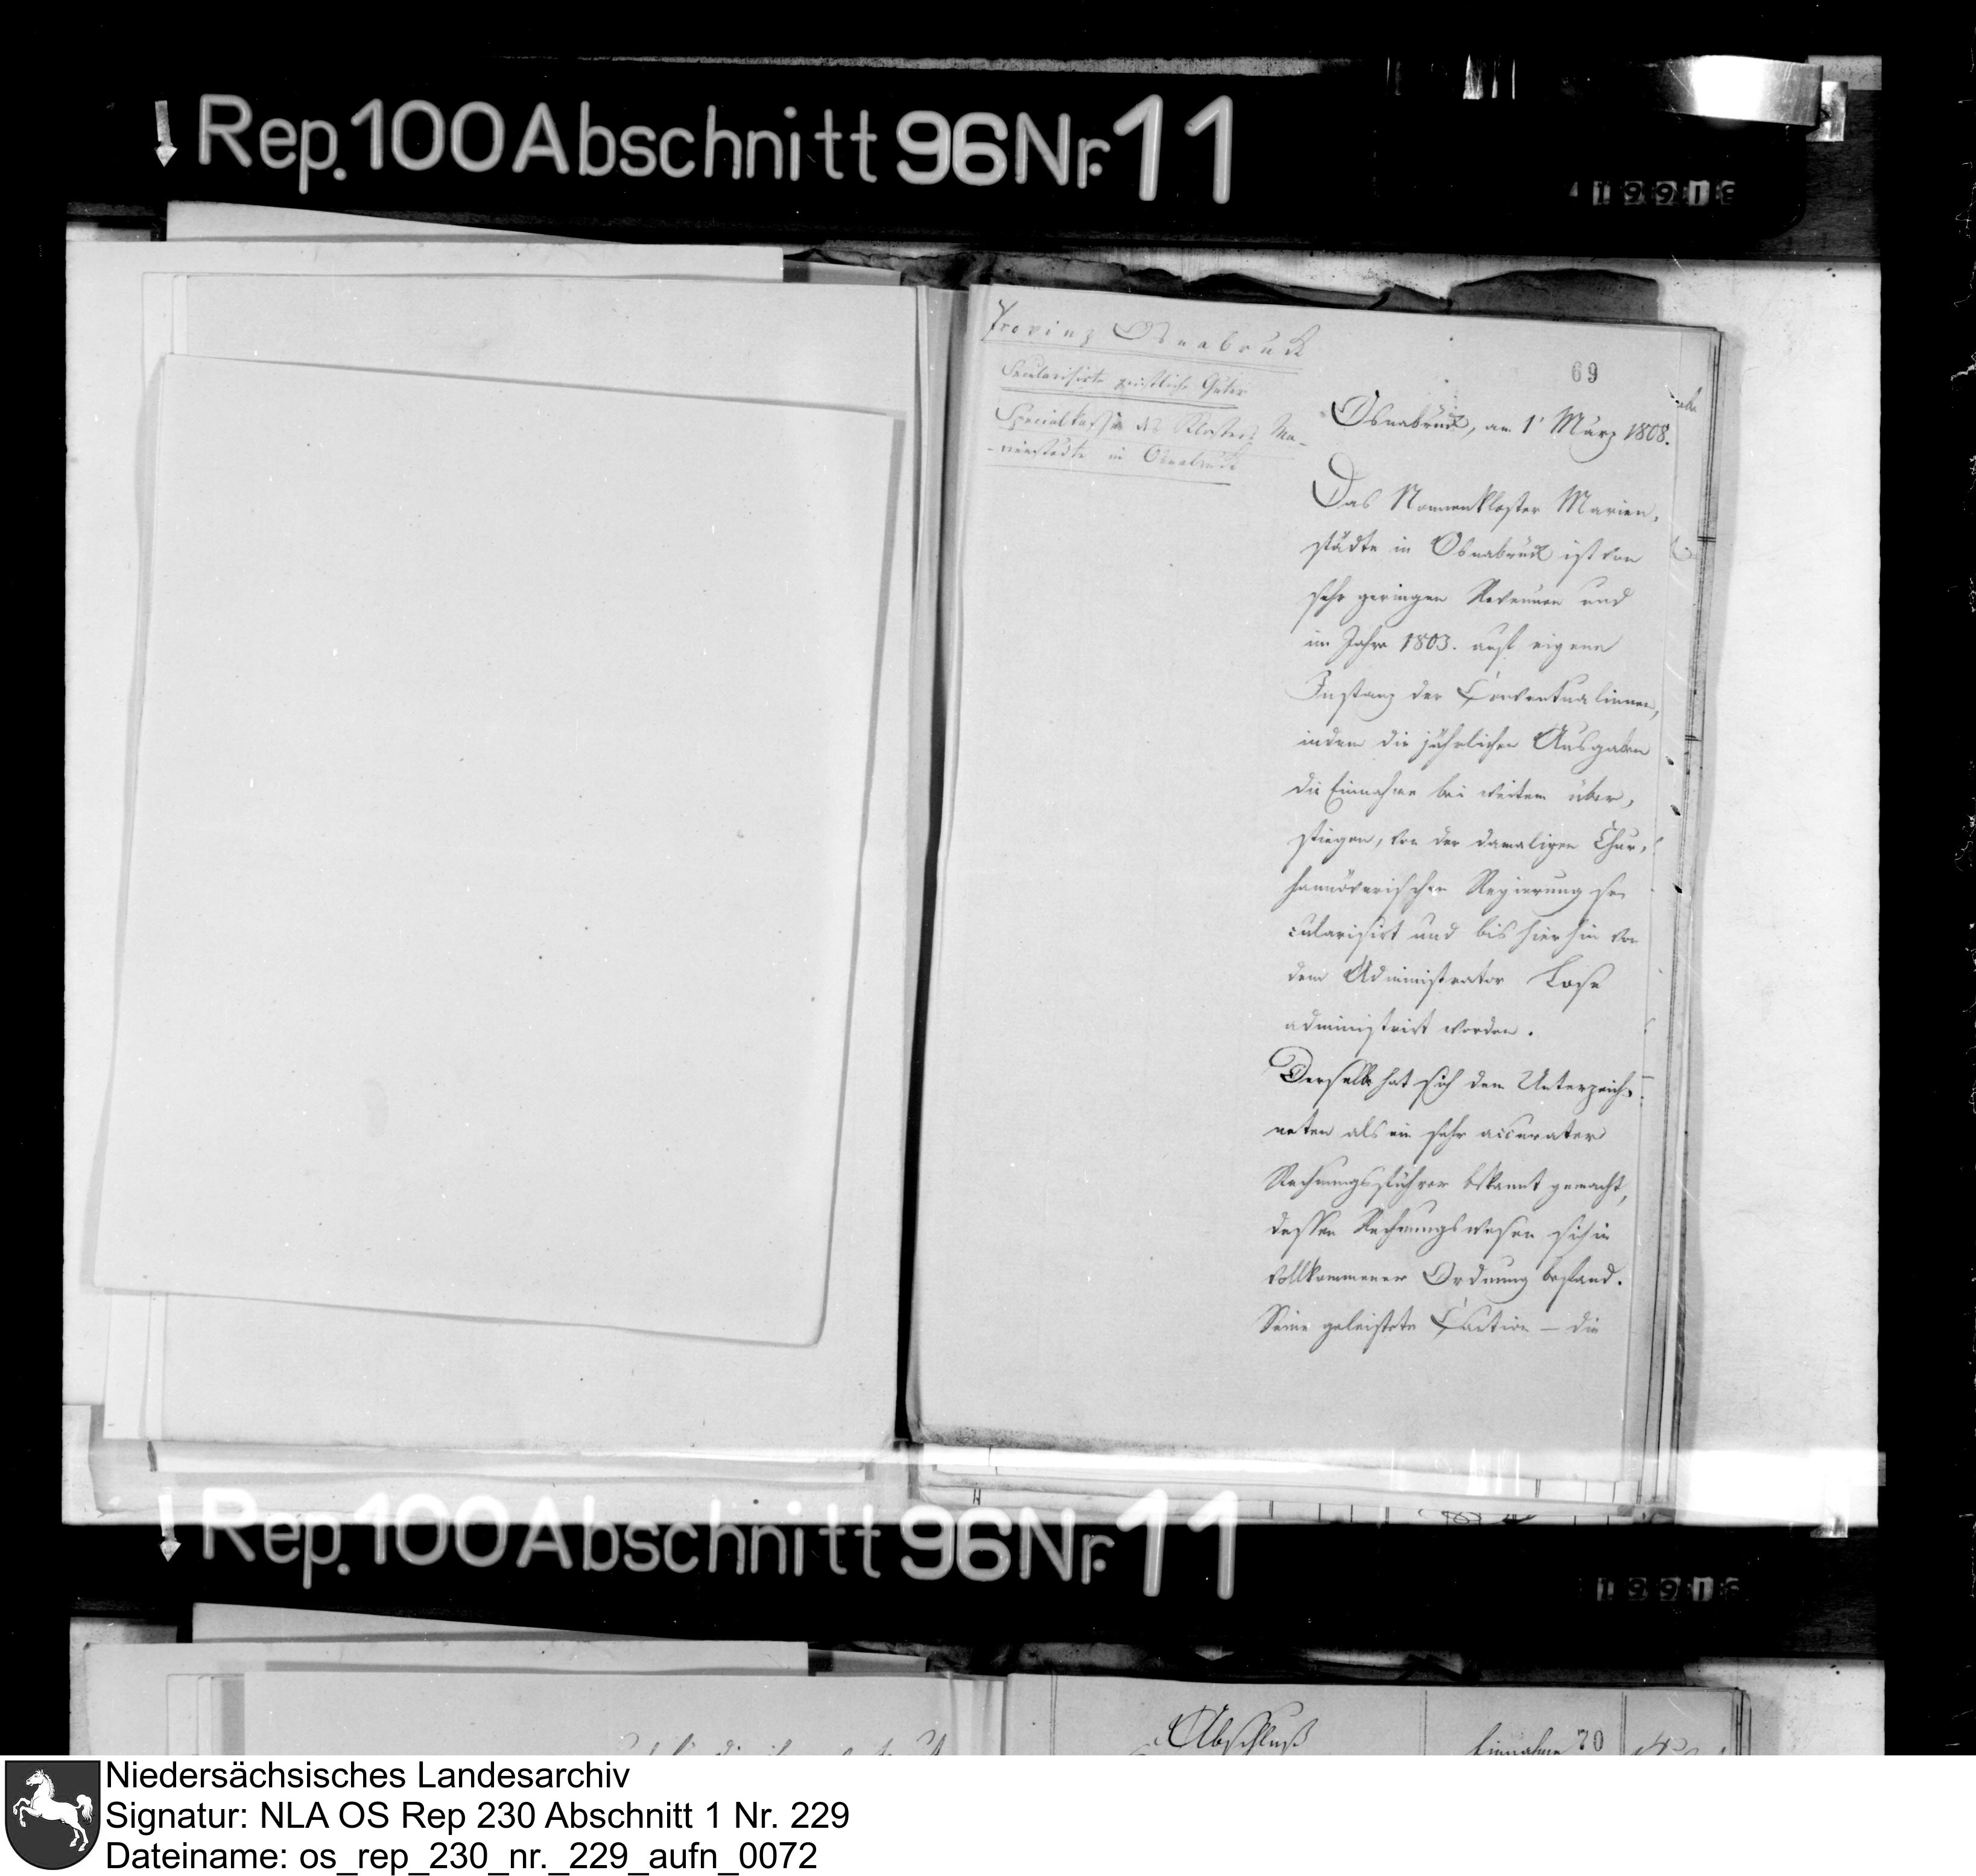 Rep. 100 Abschnitt 96 Nr. 11
1991
Provinz Osnabrück
Secularisirte geistliche Güter
Specialkasse des Klosters Ma-
-rienstädte in Osnabrück
69
Osnabrück, am 1' März 1808.
Das Nonnenkloster Marien,
städte in Osnabrück ist von
sehr geringen Revenuen und
im Jahre 1803. auf eigene
Instanz der Conventualinnen,
indem die jährlichen Ausgaben
die Einnahme bei weitem über,
stiegen, von der damaligen Chur,
hannöverischen Regierung se
cularisirt und bis hierhin von
dem Administrator Lose
administrirt worden.
Derselbe hat sich dem Unterzeich-
neten als ein sehr accurater
Rechnungsführer bekannt gemacht,
dessen Rechnungswesen sich in
vollkommener Ordnung befand.
Seine geleistete Caution – die
Rep. 100 Abschnitt 96 Nr. 11
1991
Abschluß
Einnahme 70
Niedersächsisches Landesarchiv
Signatur: NLA OS Rep 230 Abschnitt 1 Nr. 229
Dateiname: os_rep_230_nr._229_aufn_0072